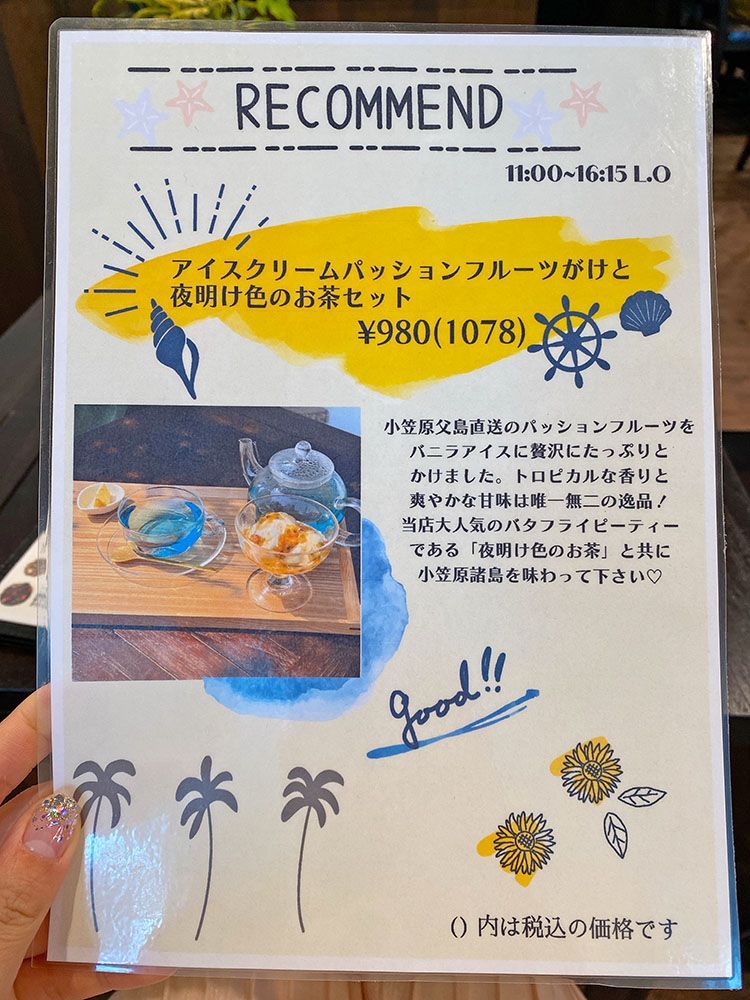 RECOMMEND
11:00~16:15 L.O
アイスクリームパッションフルーツがけと
夜明け色のお茶セット
¥980(1078)
小笠原父島直送のパッションフルーツを
バニラアイスに贅沢にたっぷりと
かけました。トロピカルな香りと
爽やかな甘味は唯一無二の逸品!
当店大人気のバタフライピーティー
である「夜明け色のお茶」と共に
小笠原諸島を味わって下さい♡
good!!
() 内は税込の価格です